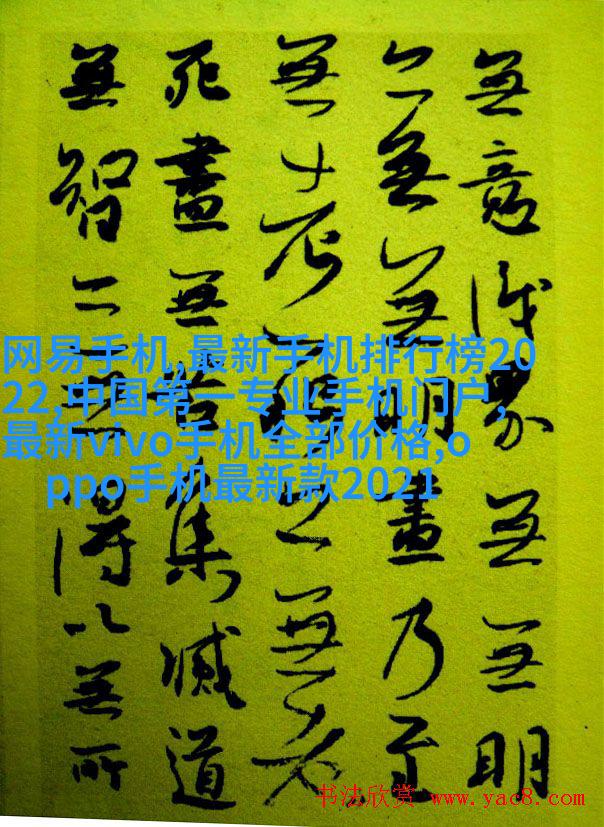 無意識界無無明
亦無無明盡乃至
無老死亦無老
死盡無苦集滅道
無智亦無得以無所
网易手机,最新手机排行榜20
22,中国第一专业手机门户,
最新vivo手机全部价格,o
ppo手机最新款2021
书法欣赏 www.yac8.com